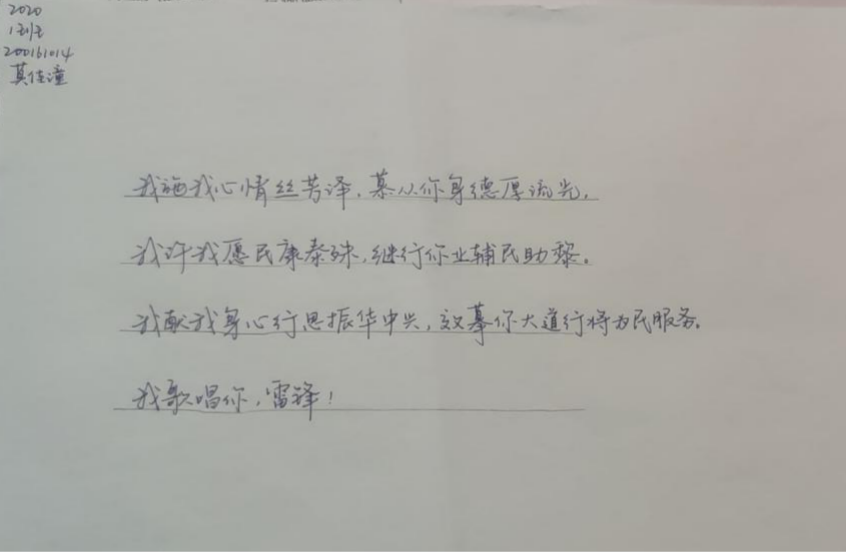 2020
200161014
莫佳潼
我施我心情丝芳泽，慕从你身德厚流光，
我许我愿民康泰殊，继行你业辅民助黎。
我献我身心行思振华中兴，效摹你大道行将为民服务。
我歌唱你，雷锋！